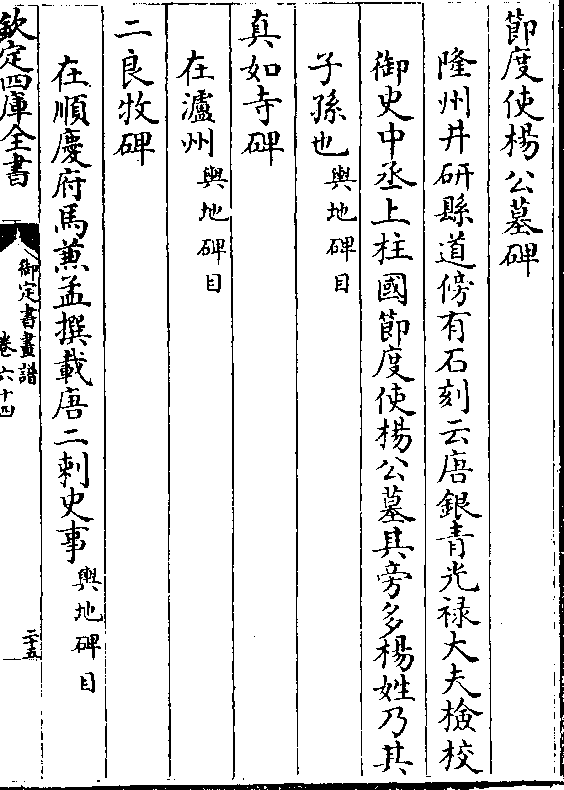 節度使楊公墓碑
隆州井研縣道傍有石刻云唐銀青光禄大夫檢校
御史中丞上柱國節度使楊公墓其旁多楊姓乃其
子孫也輿地碑目
真如寺碑
在瀘州輿地碑目
二良牧碑
在順慶府馬兼孟撰載唐二刺史事輿地碑目
欽定四庫全書
御定書畫譜
卷六十四
二十五